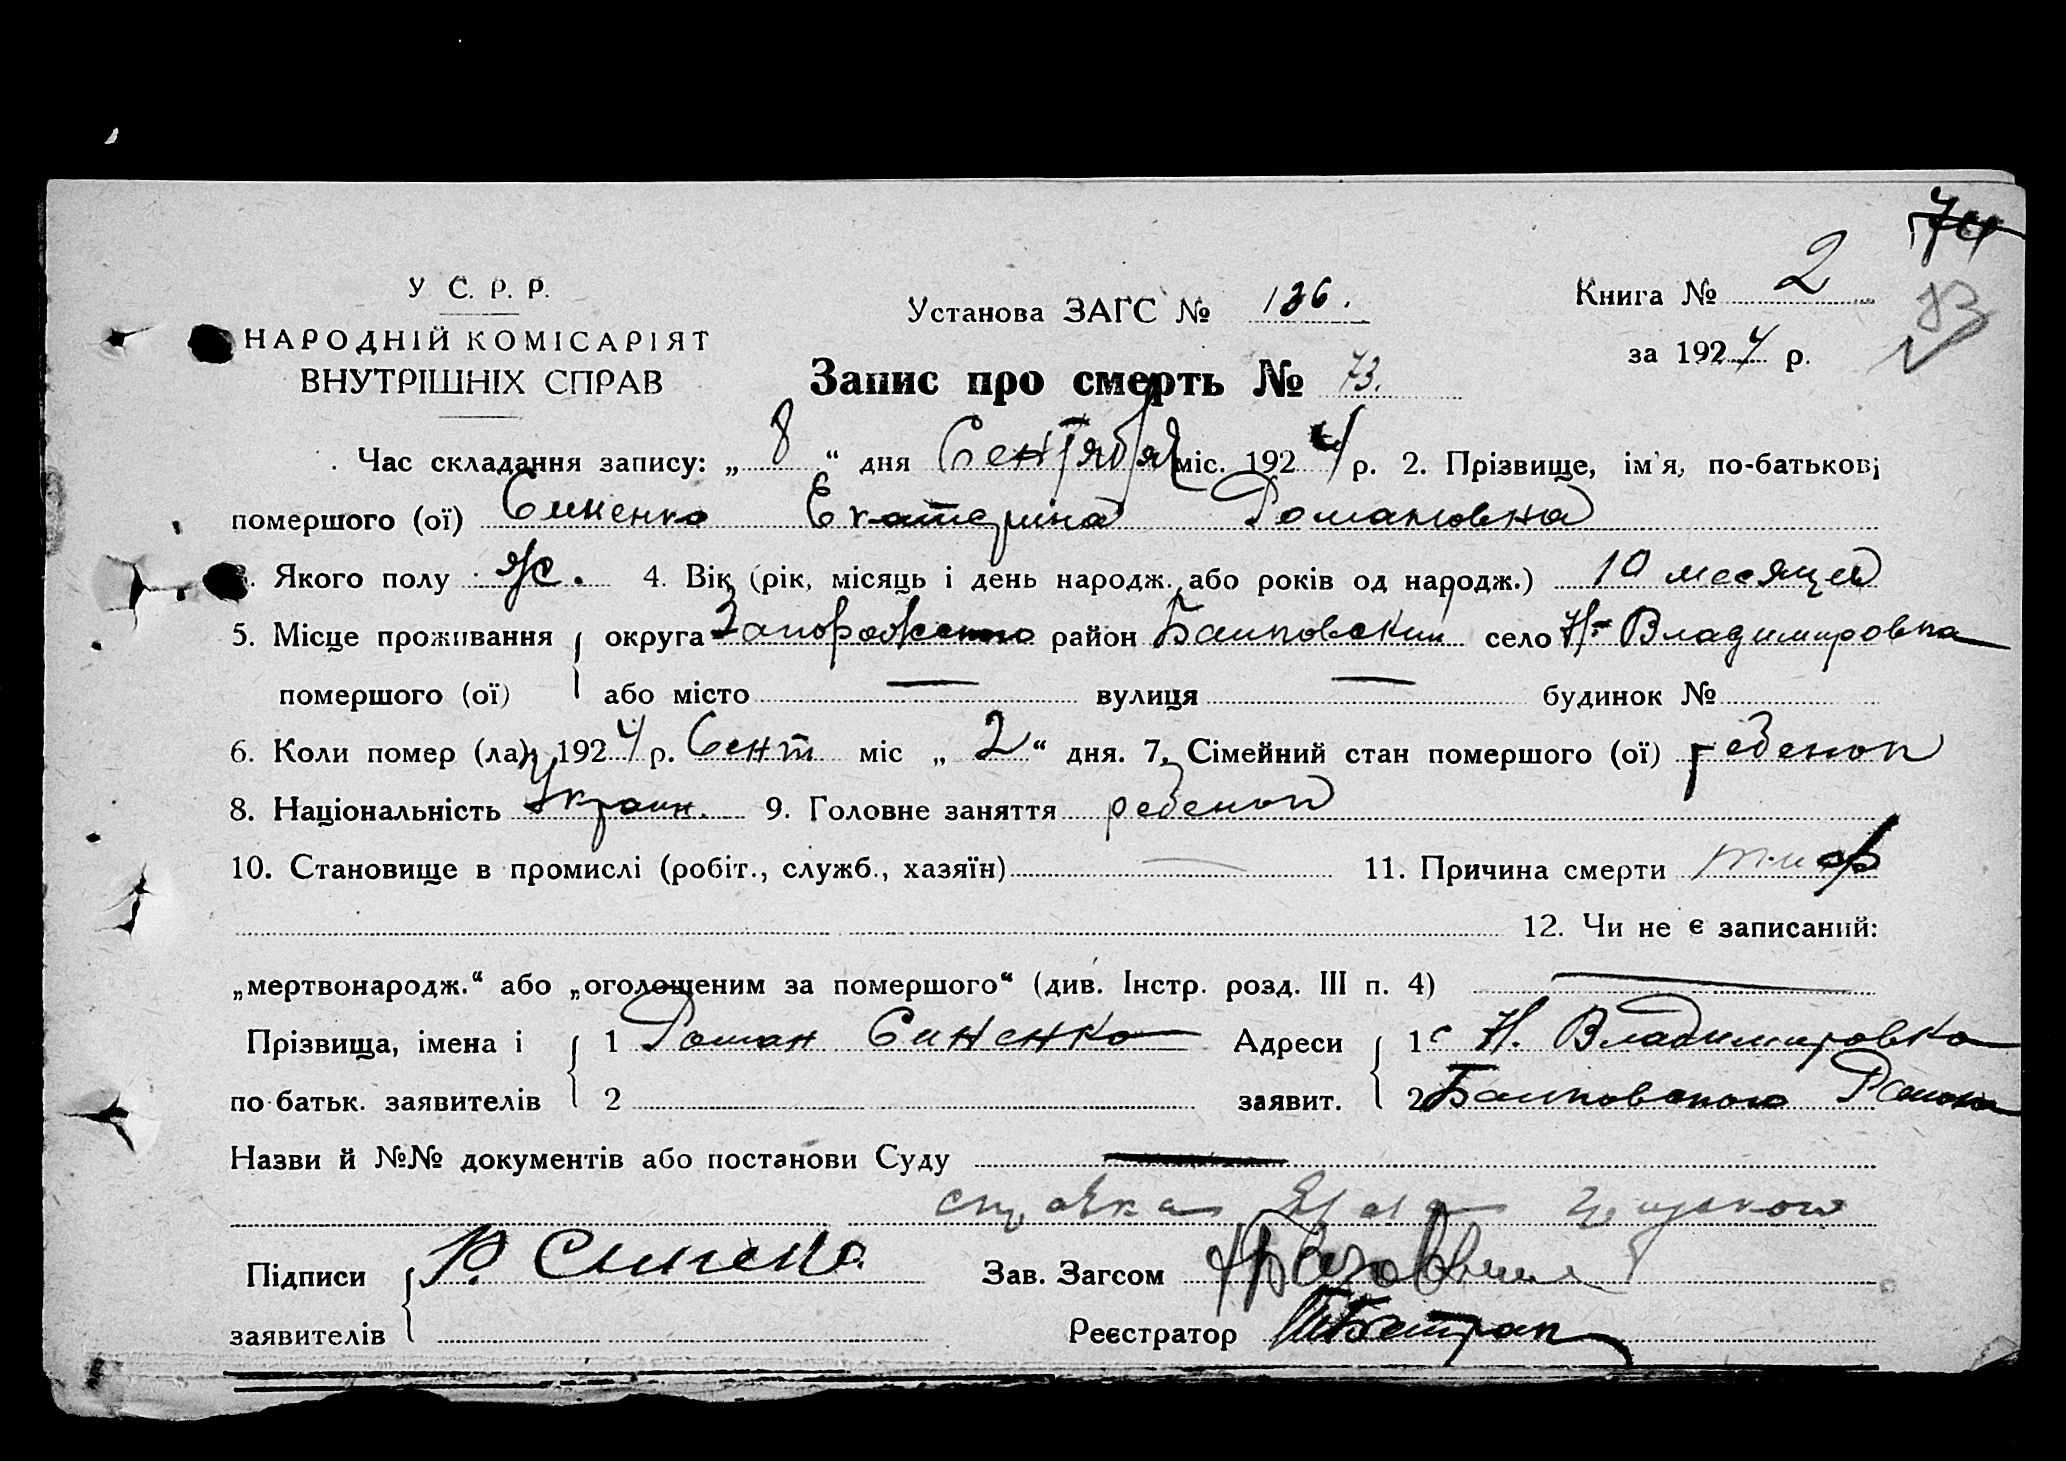 74
У С. Р. Р.
НАРОДНІЙ КОМІСАРІЯТ
ВНУТРІШНІХ СПРАВ
Установа ЗАГС № 126.
Книга № 2
73
за 1924 р.
Запис про смерть № 73.
Час складання запису: „ 8 “ дня Сентября міс. 1924 р. 2. Прізвище, ім'я, по-батькові
помершого (ої) Синенко Екатерина Романовна
3. Якого полу ж. 4. Вік (рік, місяць і день народж. або років од народж.) 10 месяцей
5. Місце проживання округа Запорожского район Балковский село Н- Владимировка
помершого (ої) або місто — вулиця — будинок №
6. Коли помер (ла) 1924 р. Сент міс „ 2 “ дня. 7. Сімейний стан помершого (ої) ребенок
8. Національність Украин. 9. Головне заняття ребенок
10. Становище в промислі (робіт., служб., хазяїн) — 11. Причина смерти тиф
12. Чи не є записаний:
„мертвонародж.“ або „оголошеним за помершого“ (див. Інстр. розд. III п. 4) —
Прізвища, імена і 1 Роман Синенко Адреси 1 с Н. Владимировка
по батьк. заявителів 2 заявит. 2 Балковского Района
Назви й №№ документів або постанови Суду —
справка
Підписи Р. Синенко Зав. Загсом
заявителів Реєстратор